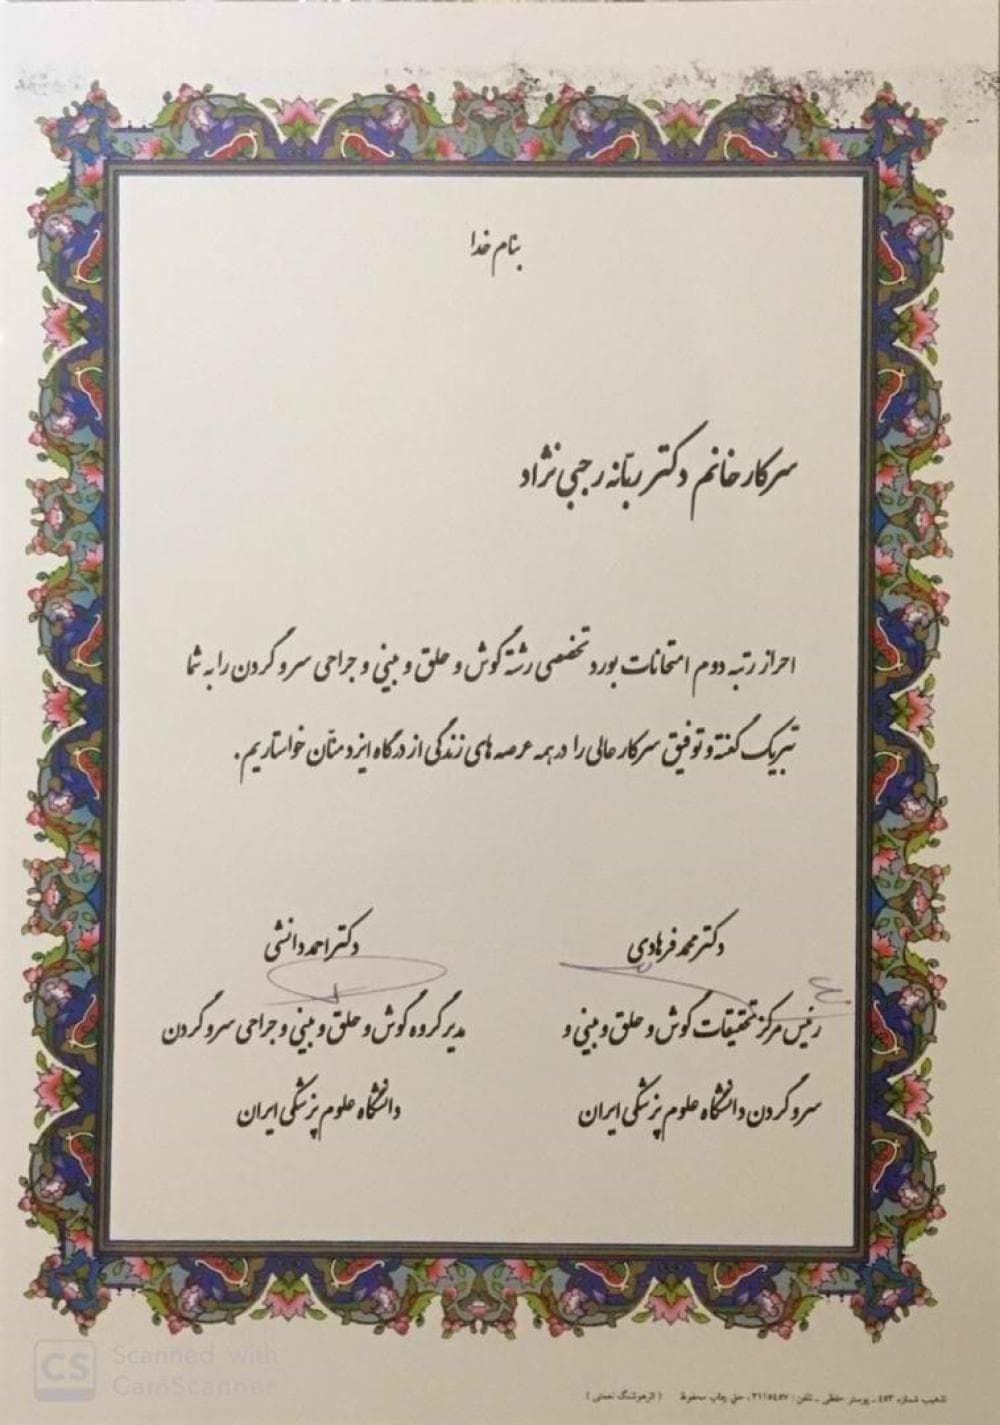 بنام خدا
سرکار خانم دکتر ریتانه رجبی نژاد
احراز رتبه دوم امتحانات بورد تخصصی رشته گوش و حلق و بینی و جراحی سر و گردن را به شما
تبریک گفته و توفیق سرکار عالی را در همه عرصه های زندگی از درگاه ایزد منّان خواستاریم.
دکتر محمد فرهادی
رئیس مرکز تحقیقات گوش و حلق و بینی و
سر و گردن دانشگاه علوم پزشکی ایران
دکتر احمد دانشی
مدیر گروه گوش و حلق و بینی و جراحی سر و گردن
دانشگاه علوم پزشکی ایران
CS Scanned with
CamScanner
تذهیب شماره ۴۵۳ ـ پوستر حنفی ـ تلفن: ۳۱۱۵۴۵۷، حق چاپ محفوظ (اثر هوشنگ نعمتی)